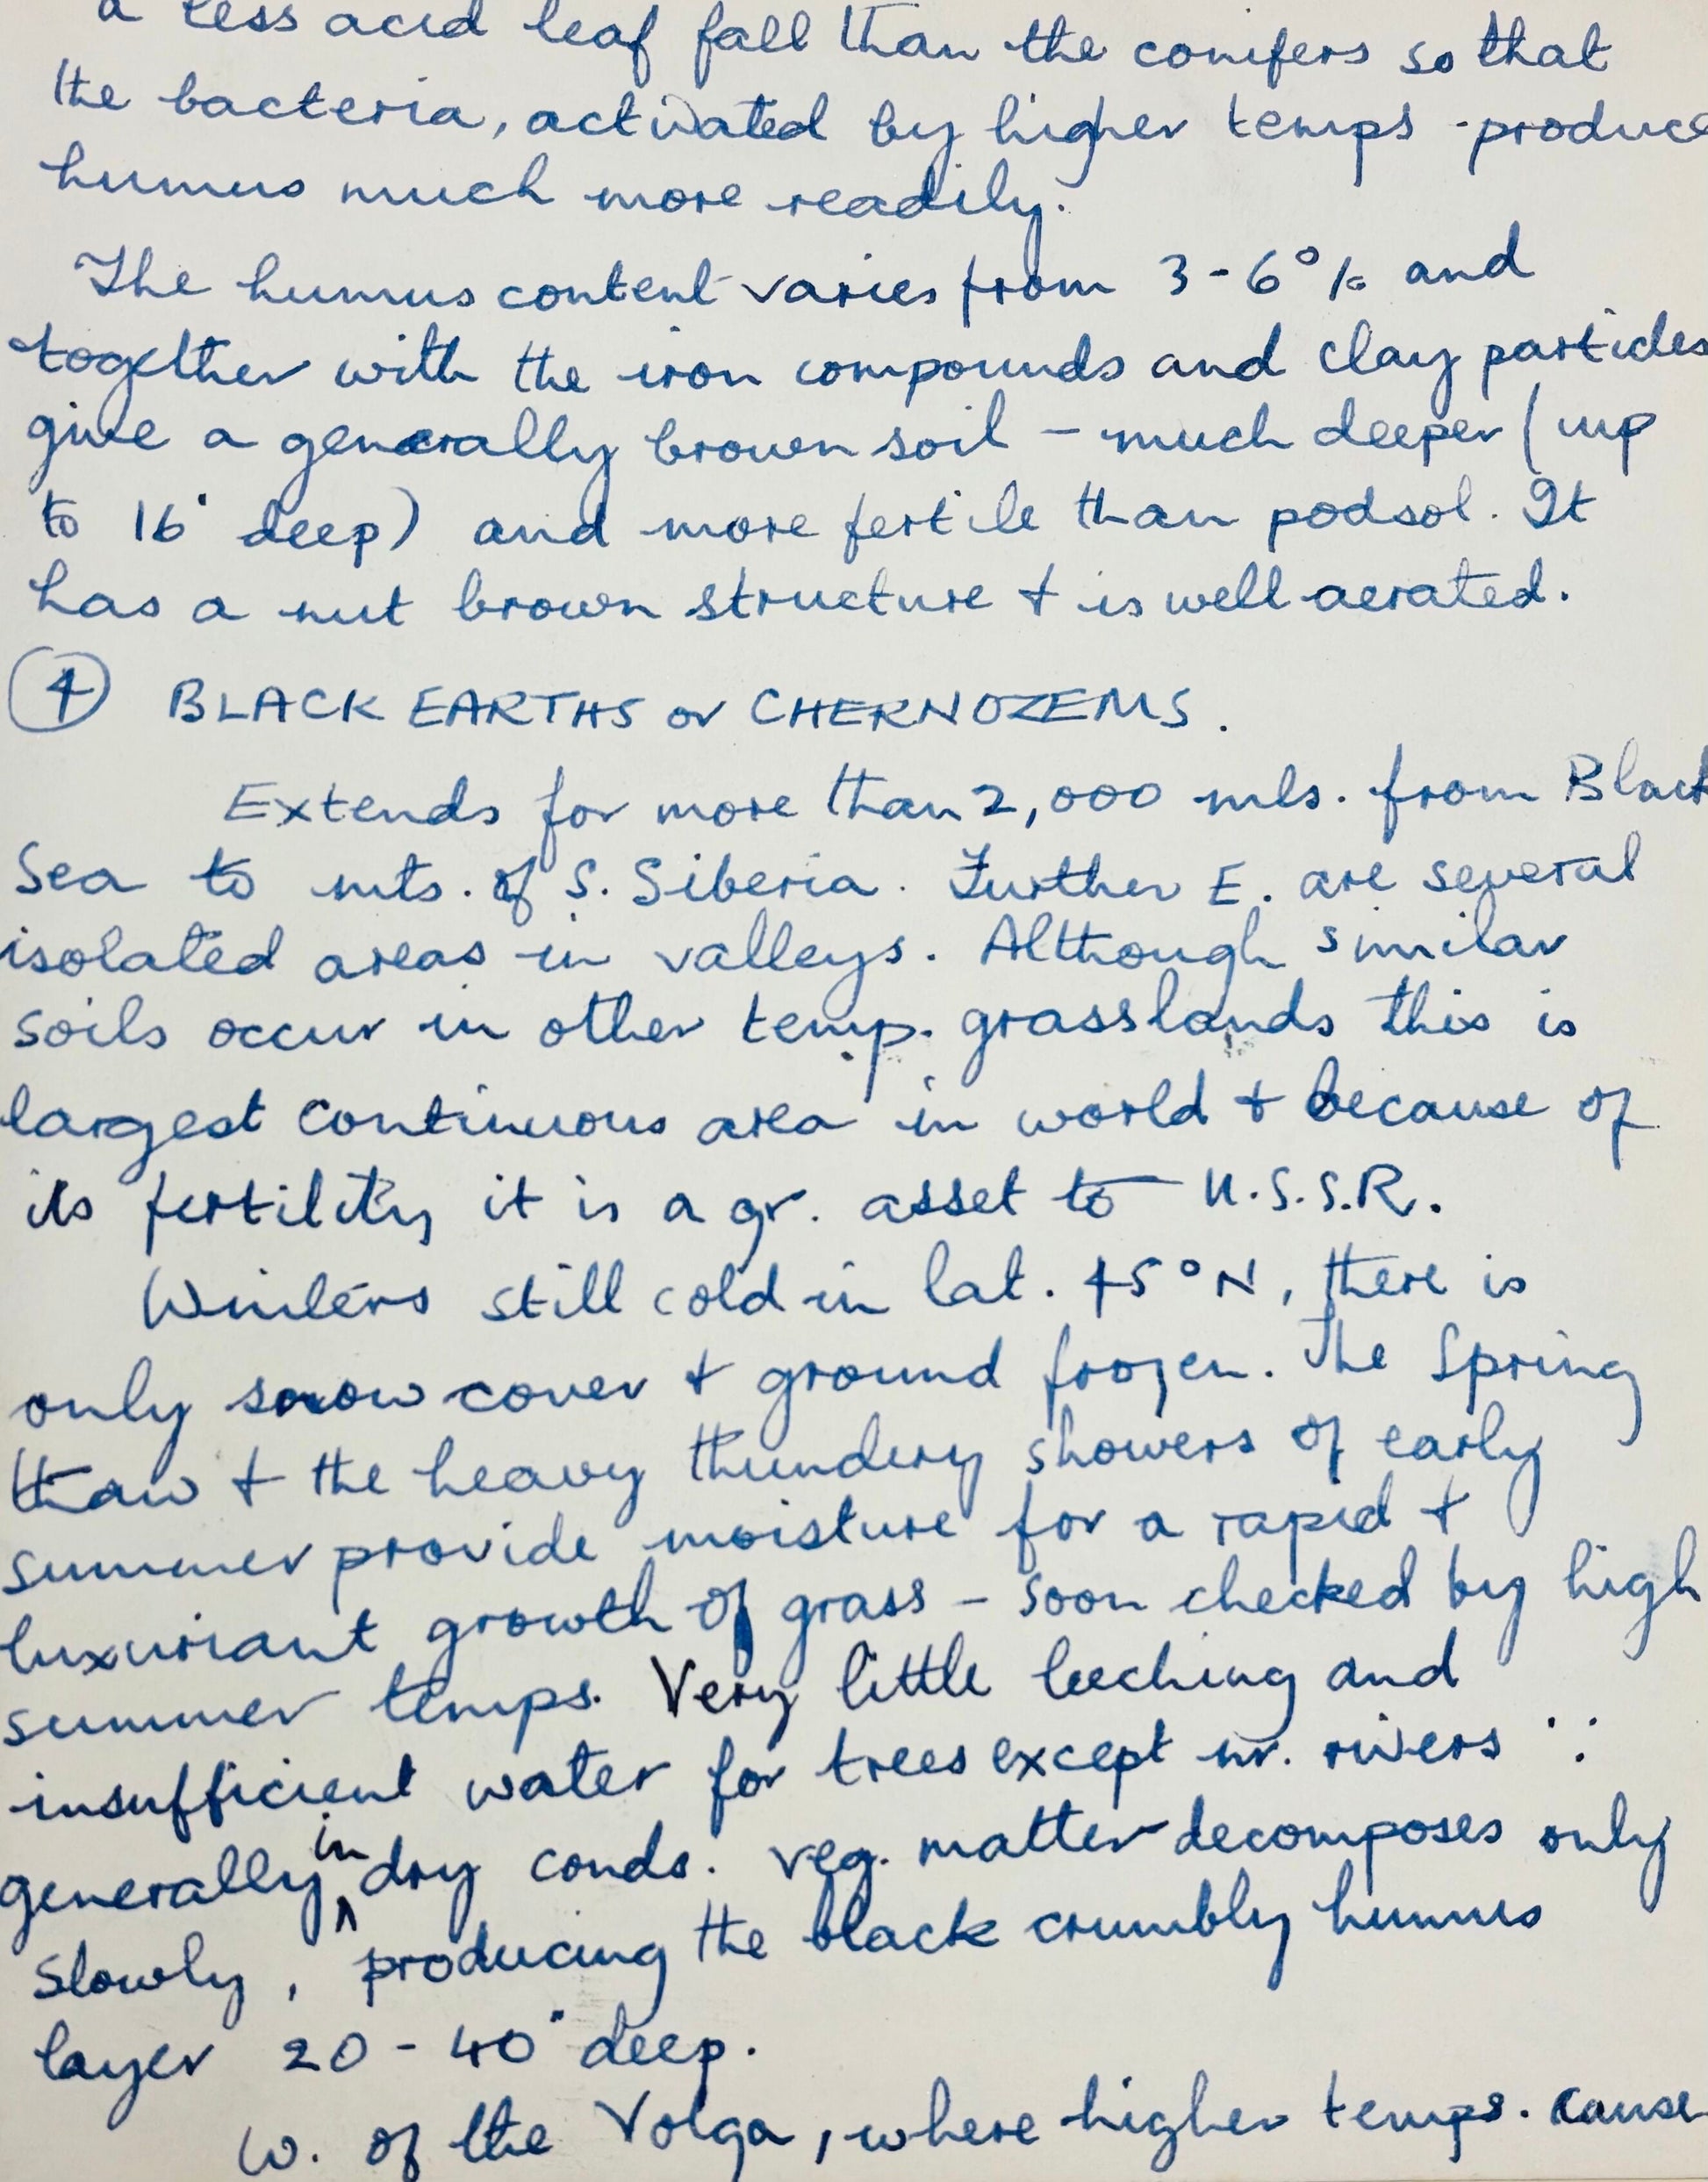 a less acid leaf fall than the conifers so that
the bacteria, activated by higher temps produce
humus much more readily.
The humus content varies from 3-6% and
together with the iron compounds and clay particles
give a generally brown soil – much deeper (up
to 16" deep) and more fertile than podsol. It
has a nut brown structure + is well aerated.
④ BLACK EARTHS or CHERNOZEMS.
Extends for more than 2,000 mls. from Black
Sea to mts. of S. Siberia. Further E. are several
isolated areas in valleys. Although similar
soils occur in other temp. grasslands this is
largest continuous area in world + because of
its fertility it is a gr. asset to U.S.S.R.
Winters still cold in lat. 45°N, there is
only snow cover + ground frozen. The Spring
thaw + the heavy thundery showers of early
summer provide moisture for a rapid +
luxuriant growth of grass – soon checked by high
summer temps. Very little leeching and
insufficient water for trees except nr. rivers ∵
generally in dry conds. veg. matter decomposes only
slowly, producing the black crumbly humus
layer 20-40" deep.
W. of the Volga, where higher temps. cause